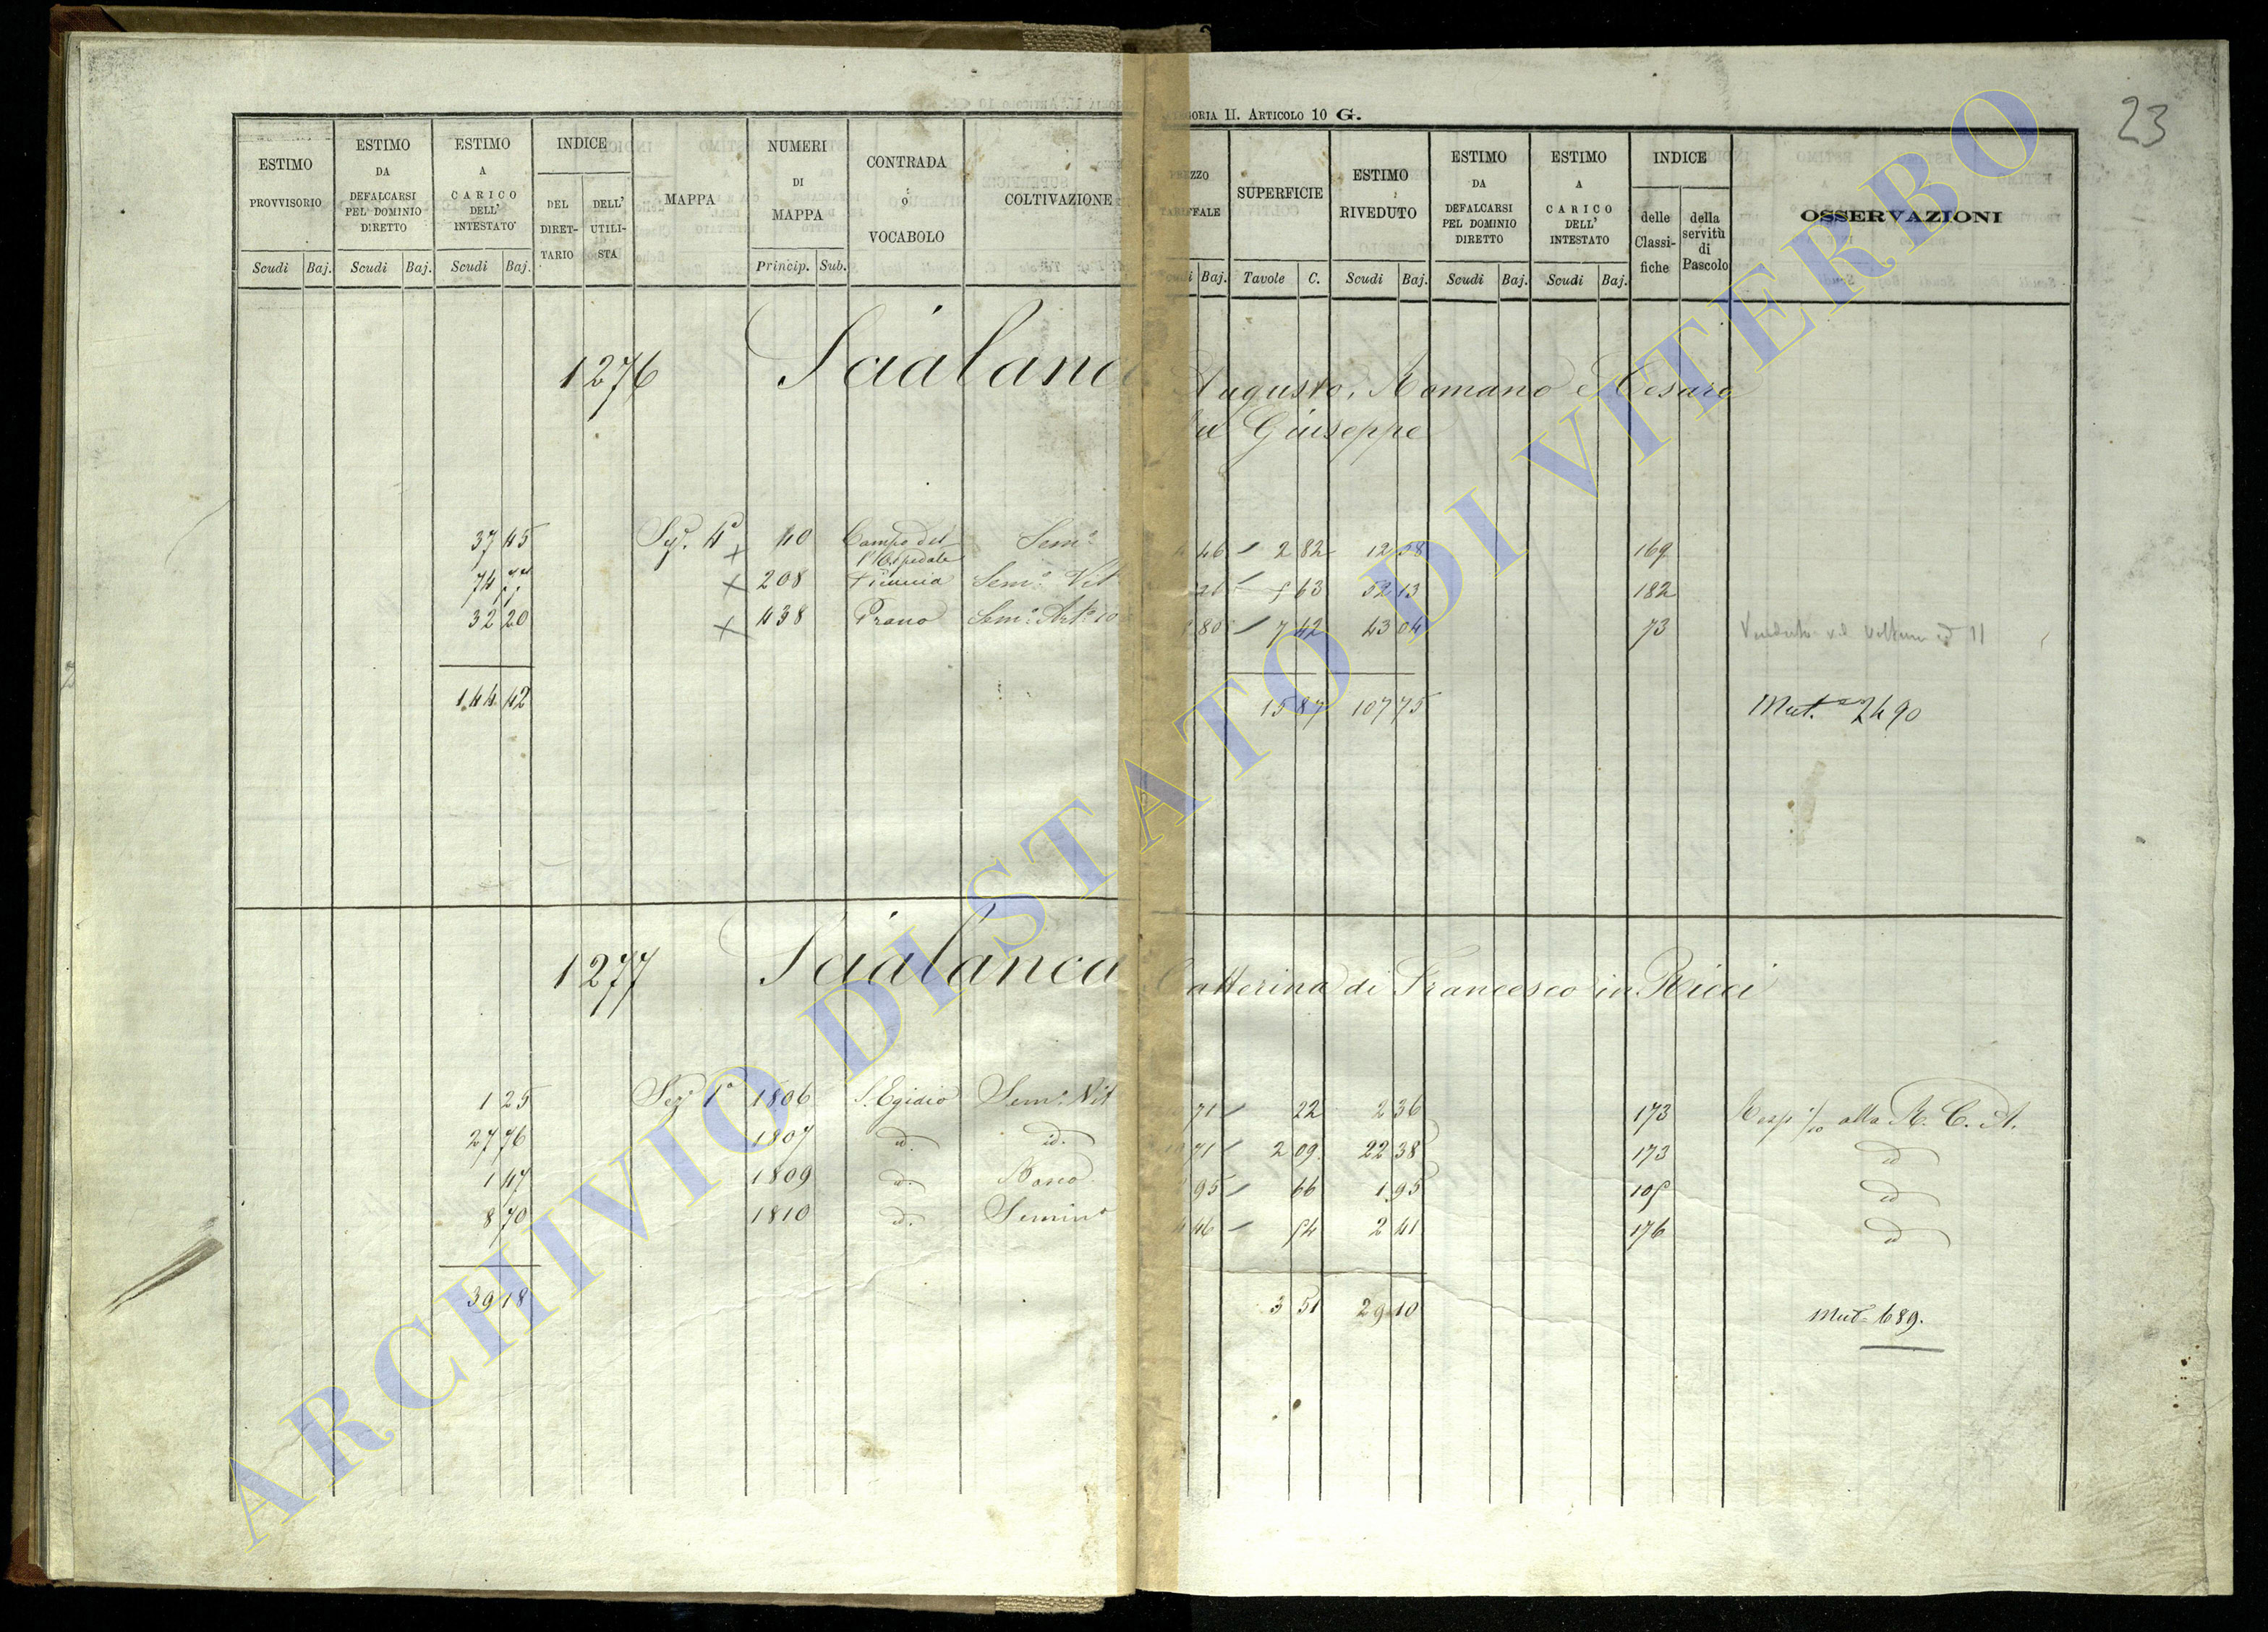 23
GORIA II. ARTICOLO 10 G.
ESTIMO PROVVISORIO Scudi Baj. ESTIMO DA DEFALCARSI PEL DOMINIO DIRETTO Scudi Baj. ESTIMO A CARICO DELL' INTESTATO Scudi Baj. INDICE DEL DIRETTARIO DELL' UTILISTA MAPPA NUMERI DI MAPPA Princip. Sub. CONTRADA o VOCABOLO COLTIVAZIONE
TARIFFALE Baj. SUPERFICIE Tavole C. ESTIMO RIVEDUTO Scudi Baj. ESTIMO DA DEFALCARSI PEL DOMINIO DIRETTO Scudi Baj. ESTIMO A CARICO DELL' INTESTATO Scudi Baj. INDICE delle Classifiche della servitù di Pascolo OSSERVAZIONI
1276 Scialanc Augusto, Romano e Cesare
Giuseppe
37 45 Sez. 4a x 40 Campo del l'Ospedale Sem.o 46 2 82 12 58 169
74 77 x 208 Sem.o Vit 26 5 63 52 13 182
32 20 x 438 Prano Sem.o Art.o 10 80 7 42 43 04 73 11
144 42 15 87 107 75 Mut. 2490
1277 Scialanca Catterina di Francesco in Ricci
1 25 Sez. 1a 1806 S. Egidio Sem.o Vit 71 22 2 36 173 alla R. C. A.
27 76 1807 id. id. 71 2 09 22 38 173 id
1 47 1809 id. 95 66 1 95 105 id
8 70 1810 id. Semin.o 46 54 2 41 176 id
39 18 3 51 29 10 Mut. 689.
ARCHIVIO DI STATO DI VITERBO